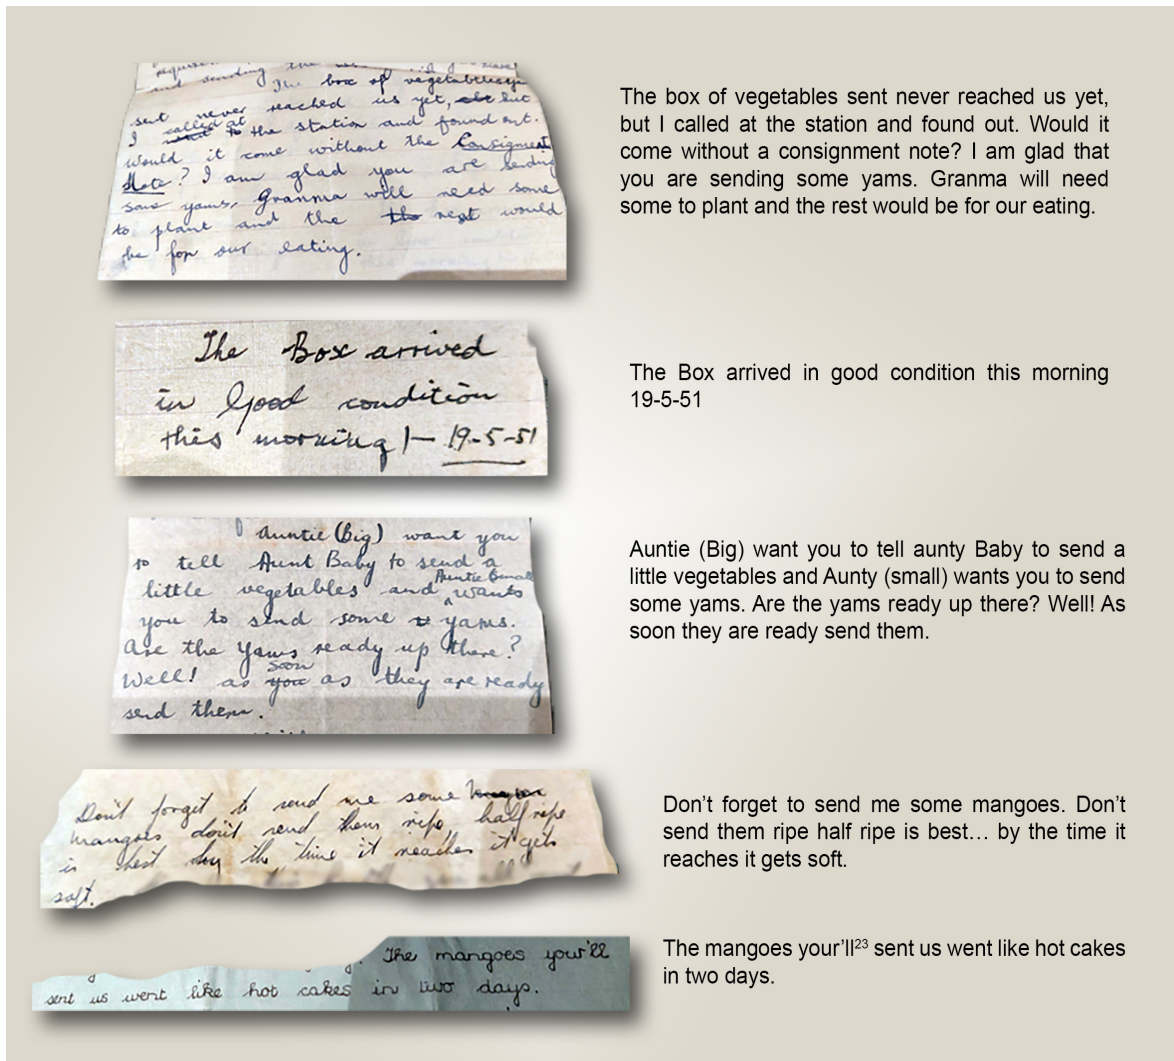 and sending the
The box of vegetables
sent never reached us yet, but
I called at the station and found out.
Would it come without the Consignment
Note? I am glad you are sending
some yams. Granma will need some
to plant and the rest would
be for our eating.
The box of vegetables sent never reached us yet,
but I called at the station and found out. Would it
come without a consignment note? I am glad that
you are sending some yams. Granma will need
some to plant and the rest would be for our eating.
The Box arrived
in Good condition
this morning 19-5-51
The Box arrived in good condition this morning
19-5-51
Auntie (Big) want you
to tell Aunt Baby to send a
little vegetables and Auntie (small) wants
you to send some yams.
Are the yams ready up there?
Well! as soon as they are ready
send them.
Auntie (Big) want you to tell aunty Baby to send a
little vegetables and Aunty (small) wants you to send
some yams. Are the yams ready up there? Well! As
soon they are ready send them.
Don't forget to send me some
mangoes don't send them ripe, half ripe
is best by the time it reaches it gets
soft.
Don’t forget to send me some mangoes. Don’t
send them ripe half ripe is best… by the time it
reaches it gets soft.
The mangoes your'll
sent us went like hot cakes in two days.
The mangoes your’ll23 sent us went like hot cakes
in two days.